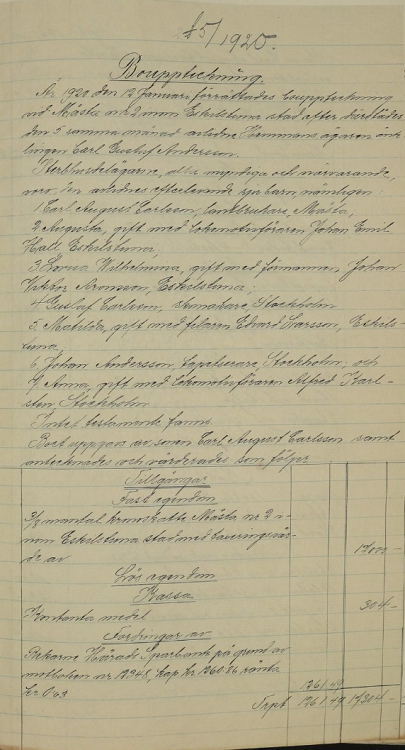 25/1920.
Bouppteckning.
År 1920 den 12 Januari förrättades bouppteckning
vid Mästa nr 2 inom Eskilstuna stad efter därstädes
den 5 samma månad avlidne Hemmansägaren änk-
lingen Carl Gustaf Andersson.
Sterbhusdelägarne, alla myndiga och närvarande,
voro den avlidnes efterlevande sju barn, nämligen:
1 Carl August Carlsson, lantbrukare, Mästa,
2 Augusta, gift med Lokomotivföraren Johan Emil
Hall Eskilstuna
3 Lovisa Wilhelmina, gift med förmannen Johan
Viktor Aronsson, Eskilstuna;
4 Gustaf Carlsson, skomakare, Stockholm
5. Matilda, gift med filaren Edvard Larsson, Eskils-
tuna,
6, Johan Andersson, tapetserare, Stockholm; och
7, Anna, gift med Lokomotivföraren Alfred Karl-
sten Stockholm
Intet testamente fanns
Boet uppgavs av sonen Carl August Carlsson samt
antecknades och värderades som följer
Tillgångar
Fast egendom
3/8 mantal kronoskatte Mästa nr 2 i-
nom Eskilstuna stad med taxeringsvär-
de av 17000 -
Lös egendom
Kassa
Kontanta medel 304 -
Fordringar av
Rekarne Härads Sparbank på grund av
motboken nr 12348, kap kr 1260.86 ränta
kr 0.63 1261 49
Trpt 1261 49 17304 -